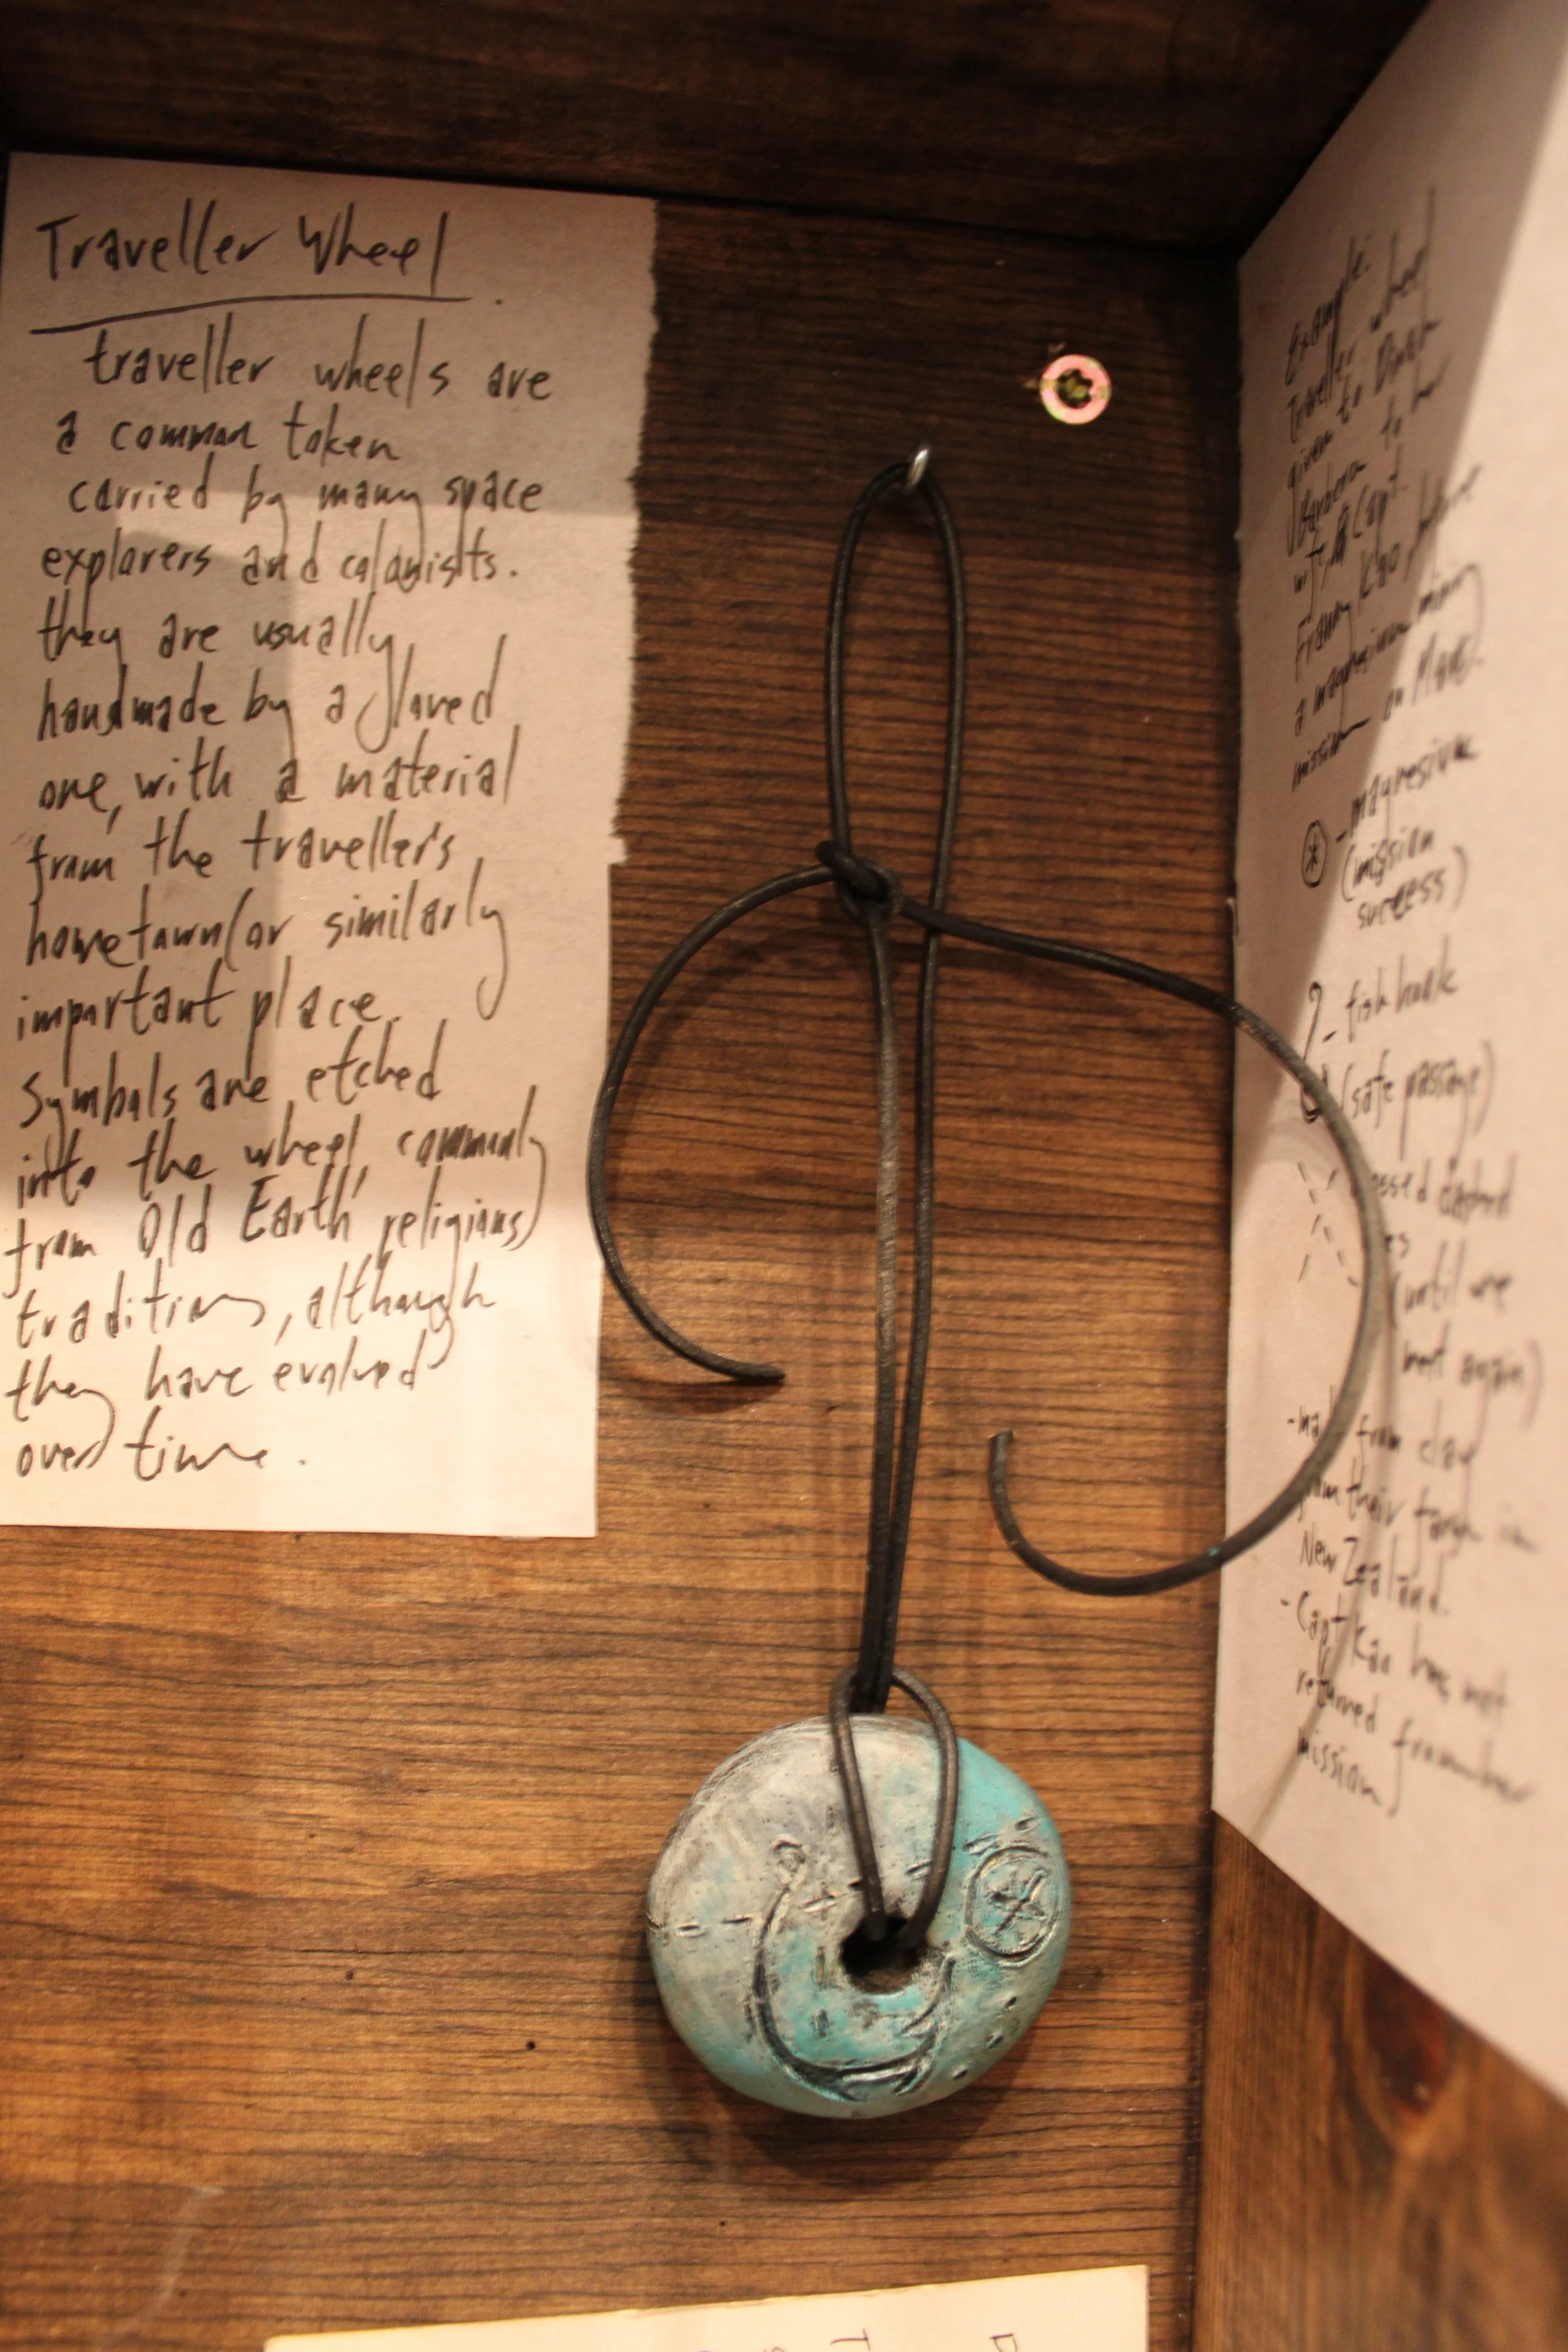 Traveller Wheel
traveller wheels are
a common token
carried by many space
explorers and colonists.
they are usually
handmade by a loved
one, with a material
from the traveller's
hometown (or similarly
important place.
Symbols are etched
into the wheel, commonly
from Old Earth religions
traditions, although
they have evolved
over time.
Example:
Traveller wheel
given to
Barbera to her
w/ Capt.
Franny Kao, before
a magnesium mining
mission on Mars.
- magnesium
(mission
success)
- fish hook
(safe passage)
(until we
meet again)
- from clay
from their farm in
New Zealand.
- Capt Kao has not
returned from her
mission